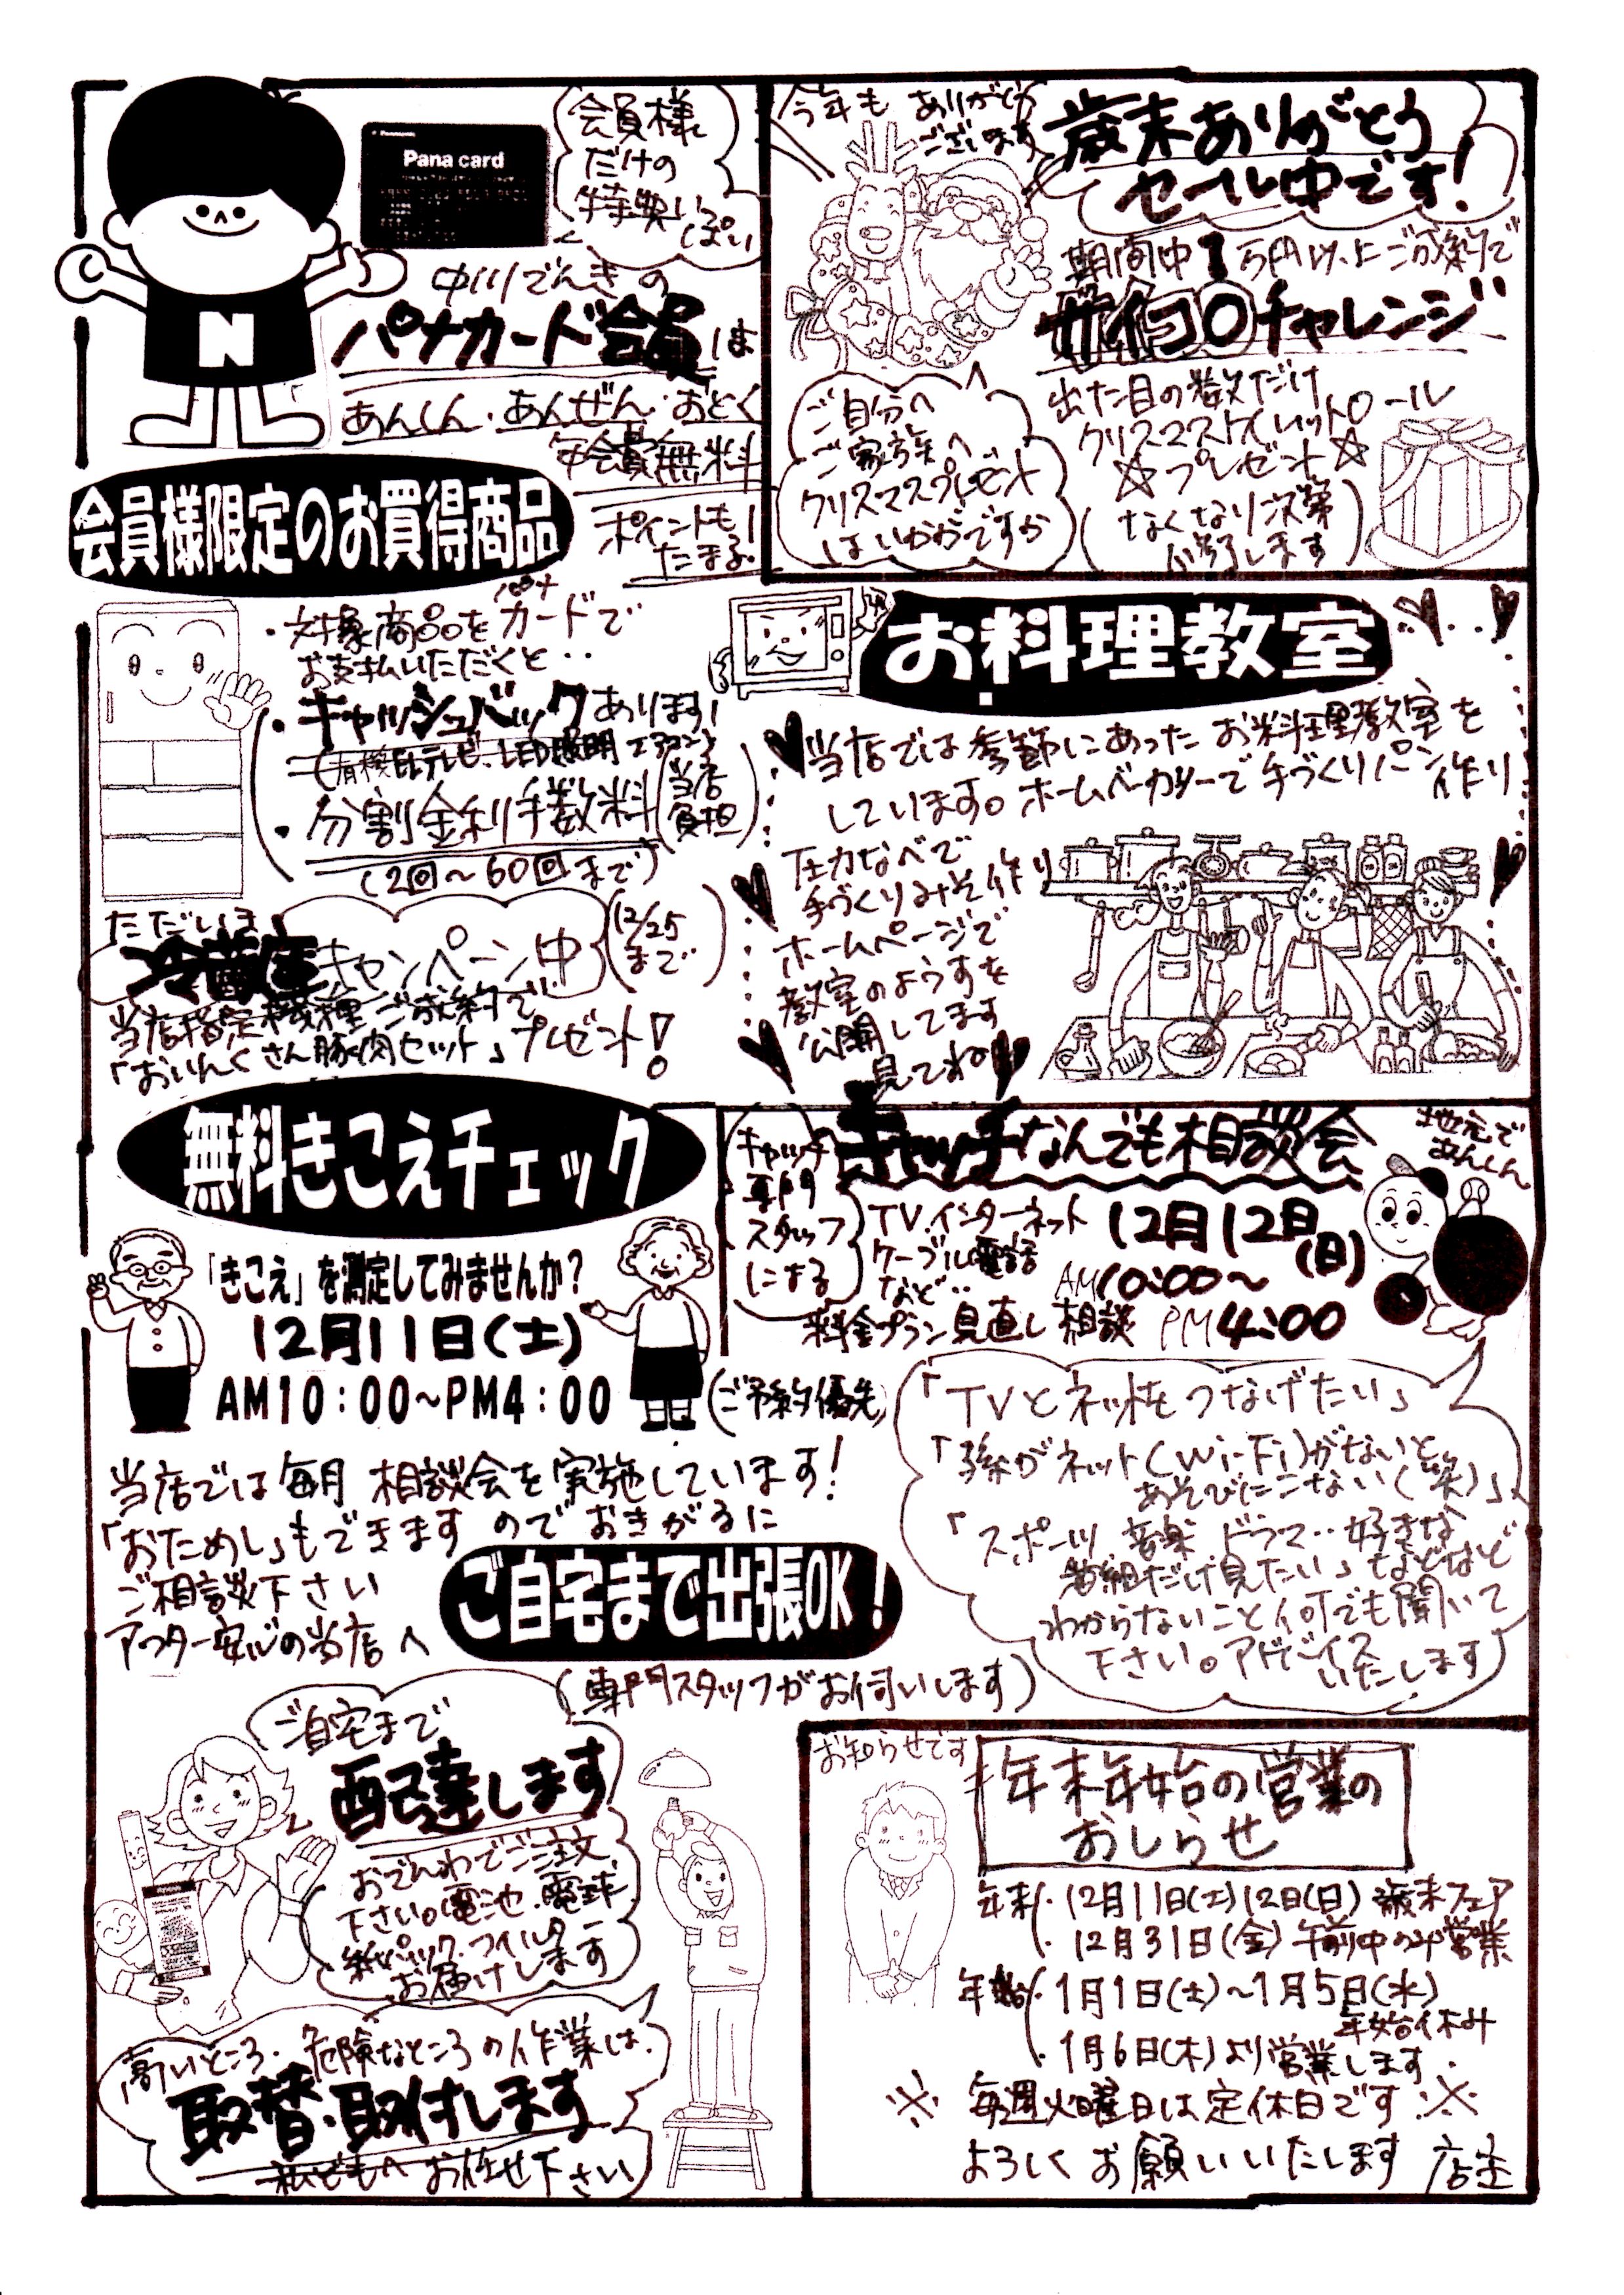 Panasonic
Pana card
会員様
だけの
特典いっぱい
中川でんきの
パナカード会員は
あんしん・あんぜん・おとく
年会費無料
ポイントも
たまる
N
会員様限定のお買得商品
・対象商品をパナカードで
お支払いただくと‥
・キャッシュバックあります!
(有機ELテレビ、LED照明エアコン)
・分割金利手数料(当店負担)
(2回～60回まで)
ただいま
冷蔵庫キャンペーン中(12/25まで)
当店指定機種ご成約で
「おいんくさん豚肉セット」プレゼント!
今年もありがとう
ございます
歳末ありがとう
セール中です!
期間中1万円以上ご成約で
サイコロチャレンジ
出た目の数だけ
クリスマストイレットロール
☆プレゼント☆
(なくなり次第
終了します)
ご自分へ
ご家族へ
クリスマスプレゼント
はいかがですか
お料理教室
当店では季節にあったお料理教室を
しています。ホームベーカリーで手づくりパン作り
圧力なべで
手づくりみそ作り
ホームページで
教室のようすを
公開してます
見てね
無料きこえチェック
「きこえ」を測定してみませんか?
12月11日(土)
AM10:00~PM4:00
(ご予約優先)
当店では毎月相談会を実施しています!
「おためし」もできますのでおきがるに
ご相談下さい
アフター安心の当店へ
ご自宅まで出張OK!
(専門スタッフがお伺いします)
キャッチ
専門
スタッフ
による
キャッチなんでも相談会
地元で
あんしん
TV.インターネット
ケーブル電話
など‥
12月12日(日)
AM10:00～
PM4:00
料金プラン見直し相談
「TVとネットをつなげたい」
「孫がネット(Wi-Fi)がないと
あそびにこない(笑)」
「スポーツ 音楽 ドラマ‥好きな
番組だけ見たい」などなど
わからないこと何でも聞いて
下さい。アドバイス
いたします
ご自宅まで
配達します
おでんわでご注文
下さい。電池・電球
紙パック・フィルター
お届けします
高いところ・危険なところの作業は
取替・取付します
私どもへお任せ下さい
お知らせです
年末年始の営業の
おしらせ
年末・12月11日(土)12日(日)歳末フェア
・12月31日(金)午前中のみ営業
年始・1月1日(土)～1月5日(水)
年始休み
・1月6日(木)より営業します
※毎週火曜日は定休日です※
よろしくお願いいたします 店主